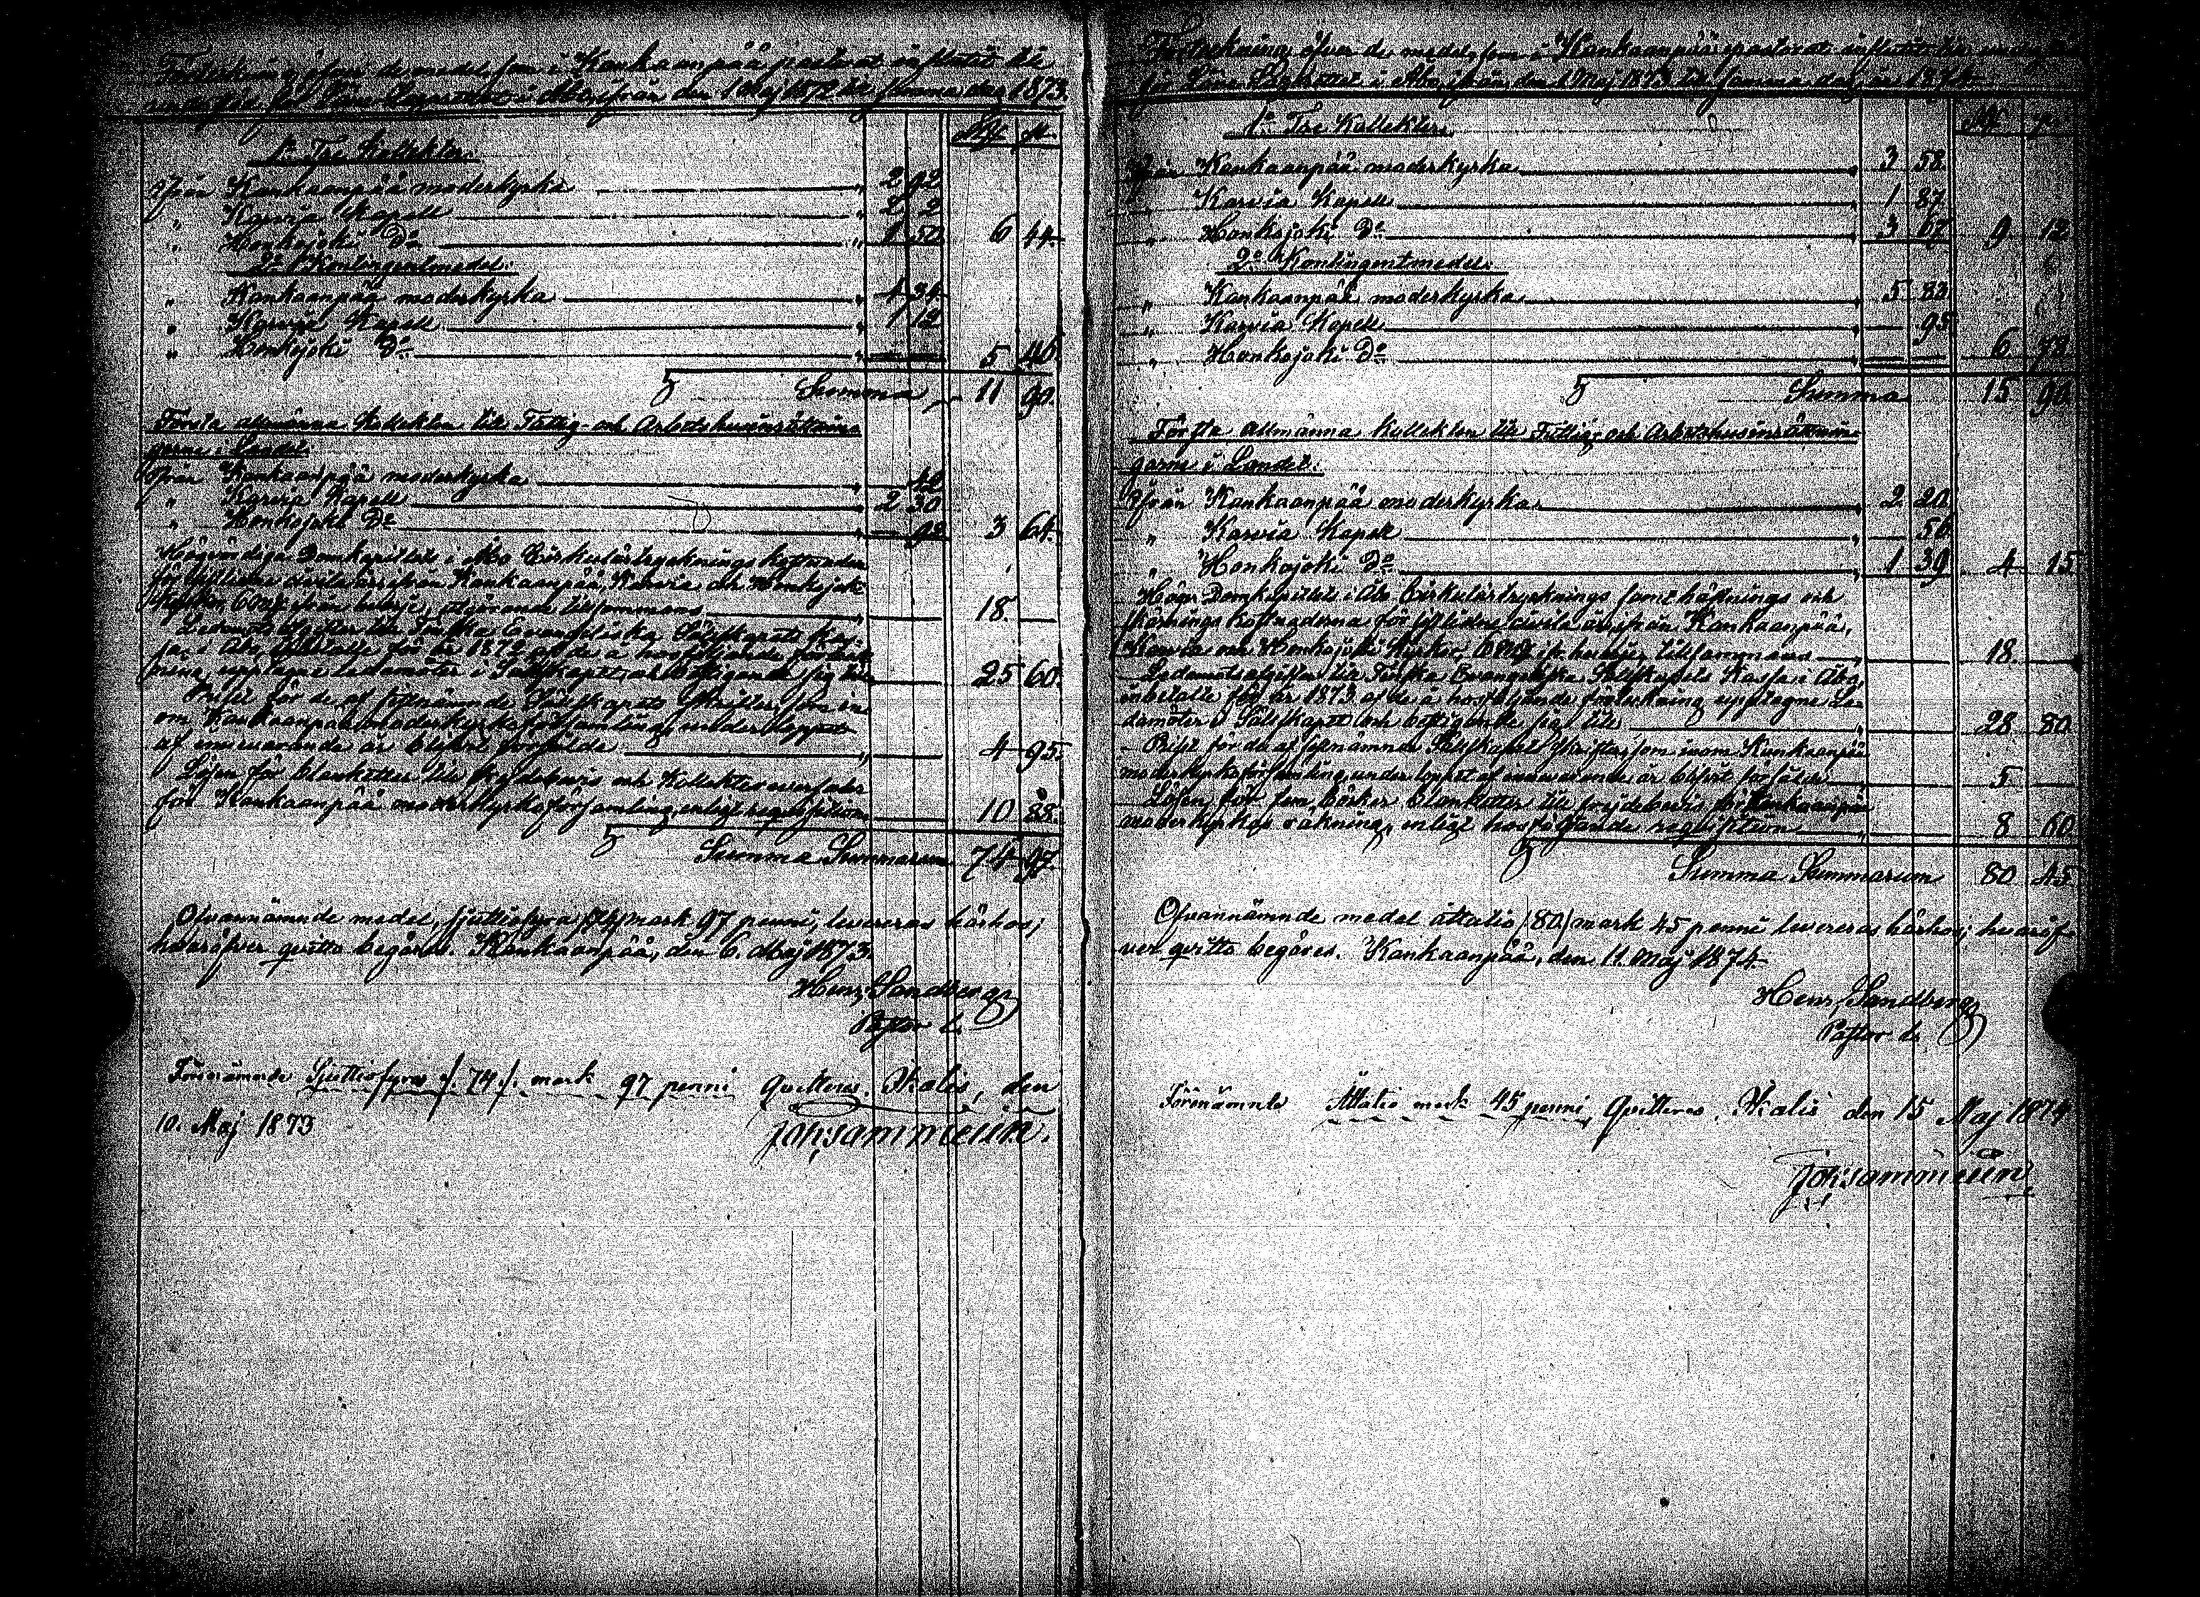 Förteckning öfver de medel, som i Kankaanpää pastorat influtit till
för Läns Lazarettet i Åbo ifrån den 1 Maj 1872 till samma dag 1873.
Mk p.
1o Tre Kollekter.
Ifrån Kankaanpää moderkyrka " 2 92
" Karvia Kapell " 2 2
" Honkojoki Do " 1 50 6 44
2o Kontingentmedel.
" Kankaanpää moderkyrka " 4 34
" Karvia Kapell " 1 12
" Honkojoki Do " — — 5 46.
Summa 11 90.
Första allmänna Kollekten till Fattig- och Arbetshusinrättnin-
garne i Landet.
Ifrån Kankaanpää moderkyrka " — 42
" Karvia Kapell " 2 30
" Honkojoki Do " — 92 3 64.
Högvördiga Domkapitlets i Åbo Cirkulärtrycknings kostnader
för civila år ifrån Kankaanpää, Karvia och Honkojoki
Kyrkor, 6 Mk från hvarje, utgörande tillsammans 18. —
Ledamots afgifter till Finska Evangeliska Sällskapets Kas-
sa i Åbo, inbetalte för år 1872 af de å hosföljande förteck-
ning upptagne ledamöter i Sällskapet och bestigande sig till 25 60.
Priset för de af sistnämnde Sällskapets skrifter, som in-
om Kankaanpää moderkyrkoförsamling under loppet
af innevarande år blifvit försålde " 4 95.
Lösen för blanketter till frejdebevis och Kollekt
för Kankaanpää moderkyrkoförsamling, enligt reqvisition 10 88.
Summa Summarum 74 97.
Ofvannämnde medel, sjuttiofyra /74/ mark 97 penni, levereras härhos;
hvaröfver qvitto begäres. Kankaanpää, den 6. Maj 1873.
Henr. Sandberg
Pastor l.
Förenämnde Sjuttiofyra /. 74 /. mark 97 penni qvitteras. Ikalis, den
10. Maj 1873
Joh: Sammelin.
Förteckning öfver de medel, som i Kankaanpää pastorat influtit till
för Läns Lazarettet i Åbo, ifrån den 1 Maj 1873 till samma dag år 1874.
Mk p.
1o Tre Kollekter.
Ifrån Kankaanpää moderkyrka " 3 58.
" Karvia Kapell " 1 87.
" Honkojoki Do " 3 67 9 12
2o Kontingentmedel.
" Kankaanpää moderkyrka " 5 83
" Karvia Kapell " — 95
" Honkojoki Do " — — 6 78
Summa 15 90.
Första allmänna Kollekten till Fattig- och Arbetshusinrättnin-
garne i Landet.
Ifrån Kankaanpää moderkyrka " 2 20.
" Karvia Kapell " — 56
" Honkojoki Do " 1 39 4 15
Högv. Domkapitlets i Åbo Cirkulärtrycknings samt häftnings och
skärnings kostnaderna för sistlidne civila år ifrån Kankaanpää,
Karvia och Honkojoki Kyrkor, 6 Mk fr. hvarje, tillsammans 18. —
Ledamotsafgifter till Finska Evangeliska Sällskapets Kassa i Åbo,
inbetalte för år 1873 af de å hosföljande förteckning upptagne Le-
damöter i Sällskapet och bestigande sig till 28 80.
Priset för de af sistnämnde Sällskapets skrifter, som inom Kankaanpää
moderkyrkoförsamling under loppet af innevarande år blifvit försålde 5 —
Lösen för fem böcker blanketter till frejdebevis för Kankaanpää
moderkyrkos räkning, enligt hosföljande reqvisition " 8 60
Summa Summarum 80 45
Ofvannämnde medel åttatio /80/ mark 45 penni levereras härhos; hvaröf-
ver qvitto begäres. Kankaanpää, den 11. Maj 1874.
Henr. Sandberg
Pastor l.
Förenämnde Åttatio mark 45 penni, Qvitteras. Ikalis den 15 Maj 1874
Joh: Sammelin